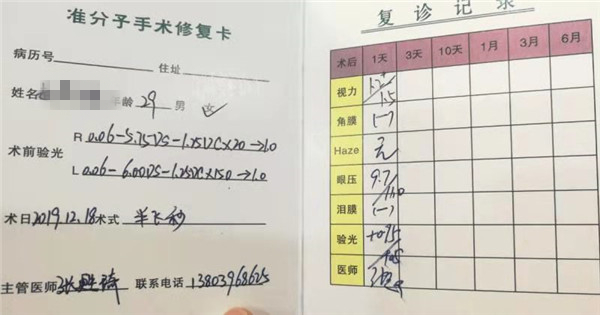 准分子手术修复卡
病历号 住址
姓名 年龄 29 男 女
术前验光 R 0.06-5.75DS-1.25DC×20→1.0
L 0.06-6.00DS-1.25DC×150→1.0
术日2019.12.18术式 半飞秒
主管医师 联系电话 13803968625
复诊记录
术后 1天 3天 10天 1月 3月 6月
视力 1.2 1.5
角膜 (-)
Haze 无
眼压 9.7
泪膜 (-)
验光 +0.75
医师